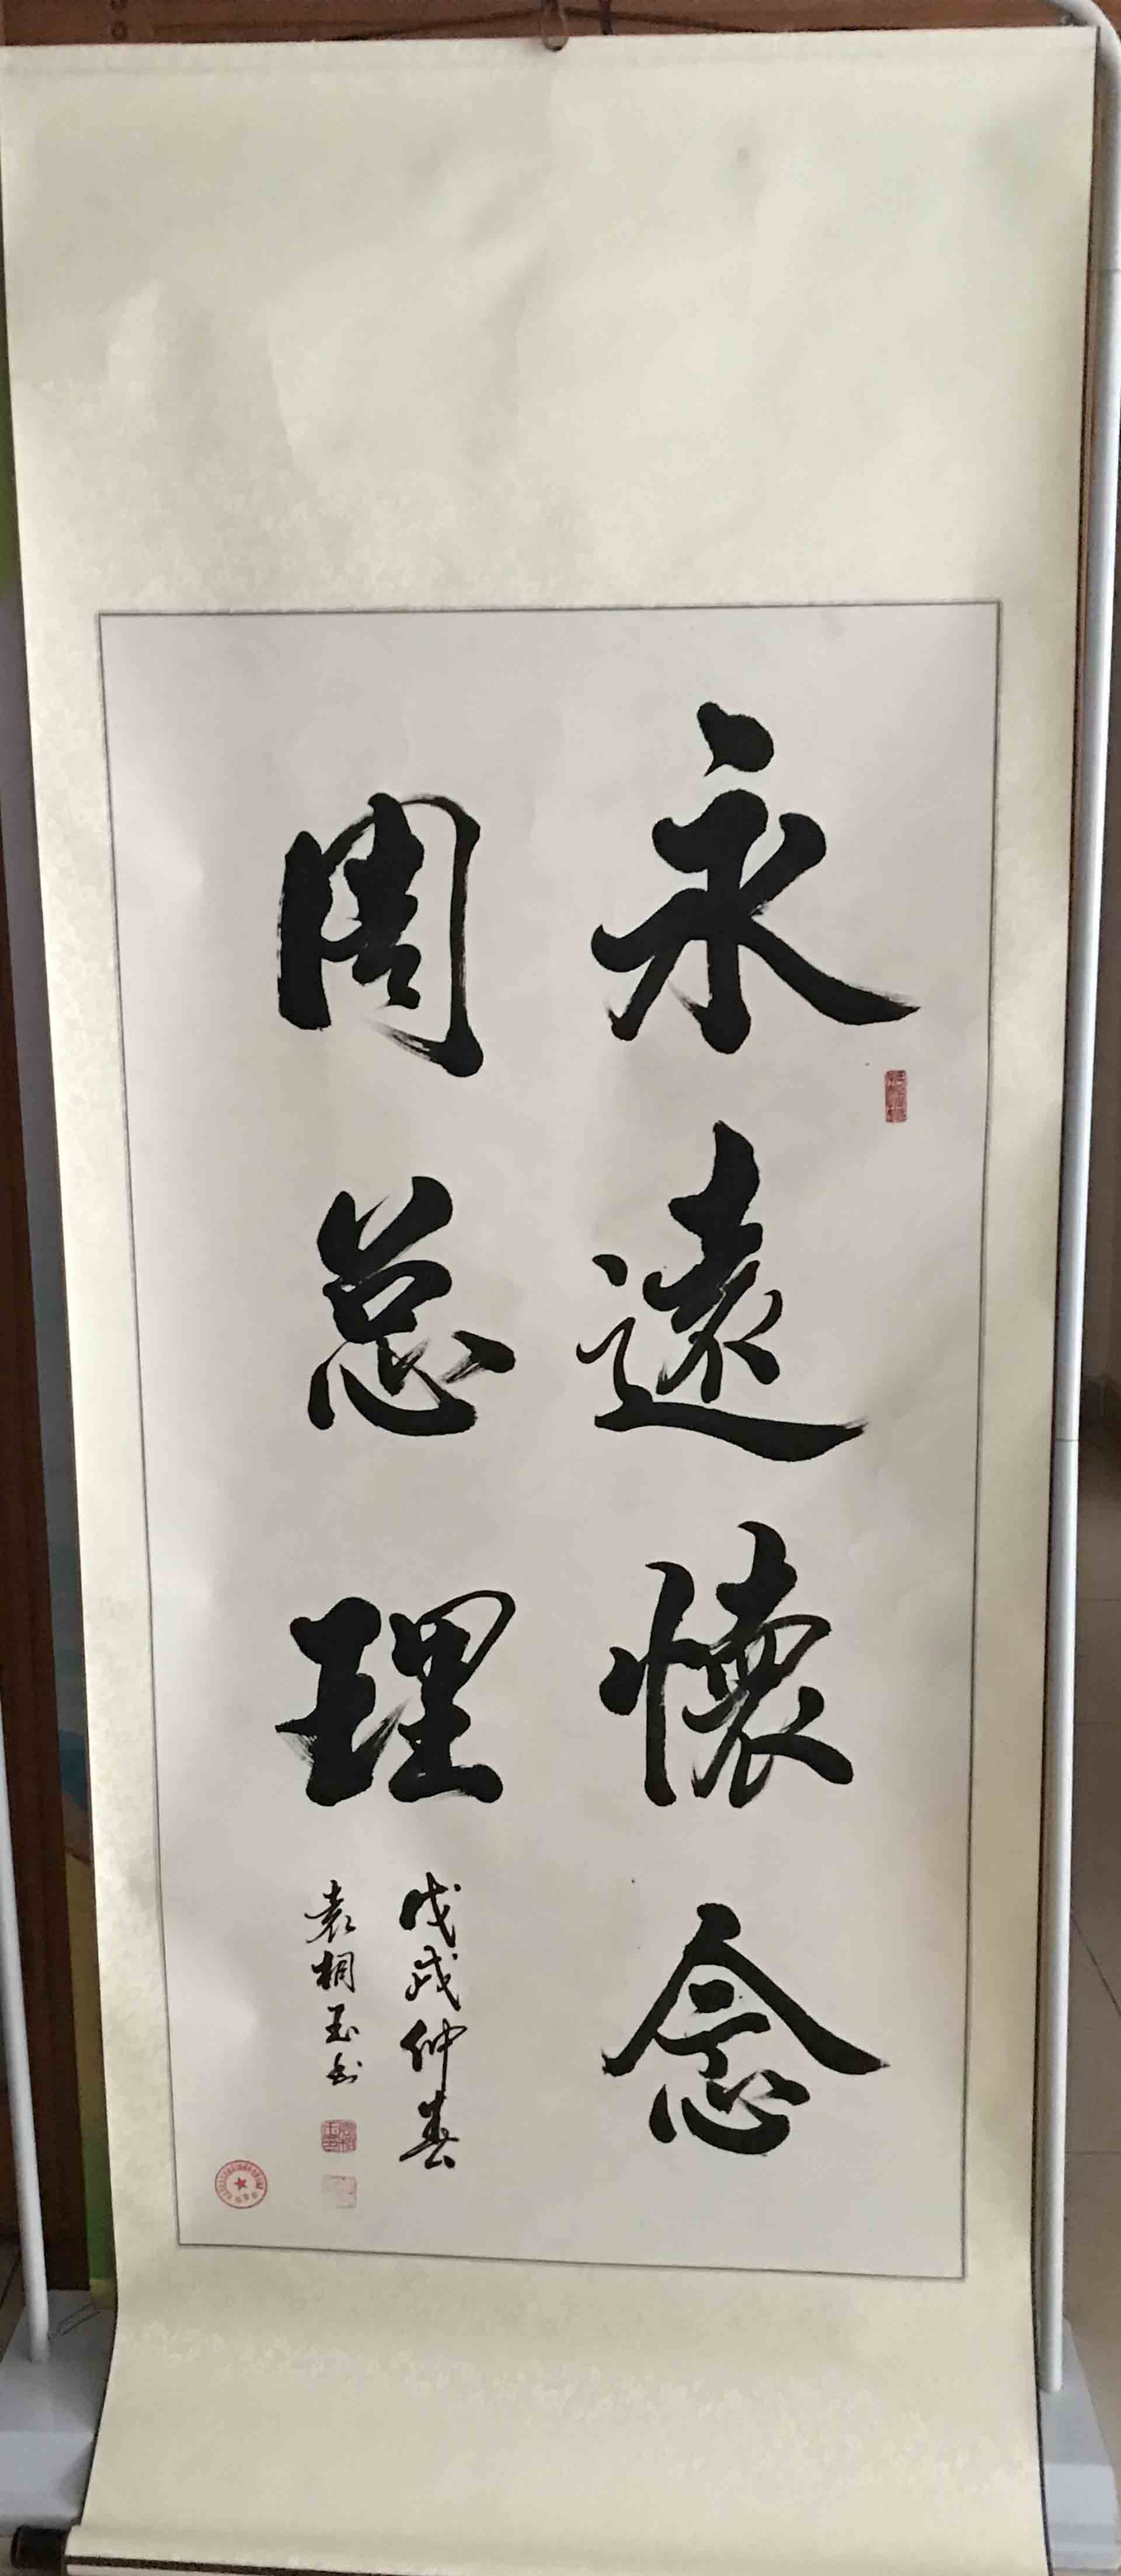 永遠懷念
周总理
戊戌仲春
袁桐玉书